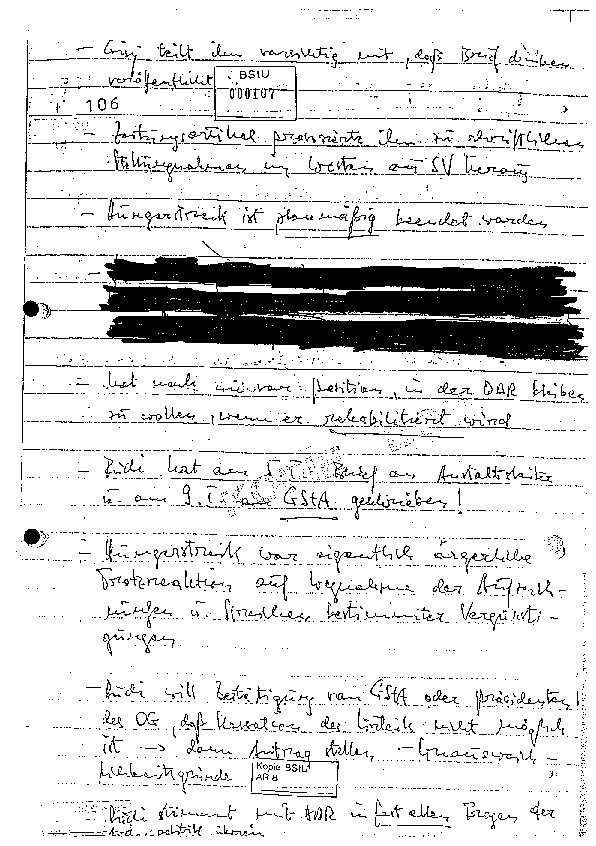 - teilt ihm vorsichtig mit, daß Brief drüben
veröffentlicht
BStU
000107
106
- Zeitungsartikel provozierte ihn zu schriftlichen
Stellungnahmen im Westen aus SV heraus
- Hungerstreik ist planmäßig beendet worden
- hat nach wie vor Position, in der DDR bleiben
zu wollen, wenn er rehabilitiert wird
- Rudi hat am 5. I. Brief an Anstaltsleiter
u. am 9. I. an GStA geschrieben!
- Hungerstreik war eigentlich ärgerliche
Trotzreaktion auf Wegnahme der Aufzeich-
nungen u. Streichen bestimmter Vergünsti-
gungen
- Rudi will Bestätigung von GStA oder Präsidenten
des OG, daß Kassation des Urteils nicht möglich
ist → dann Antrag stellen -
Kopie BStU
AR 8
- Rudi stimmt mit in fast allen Fragen der